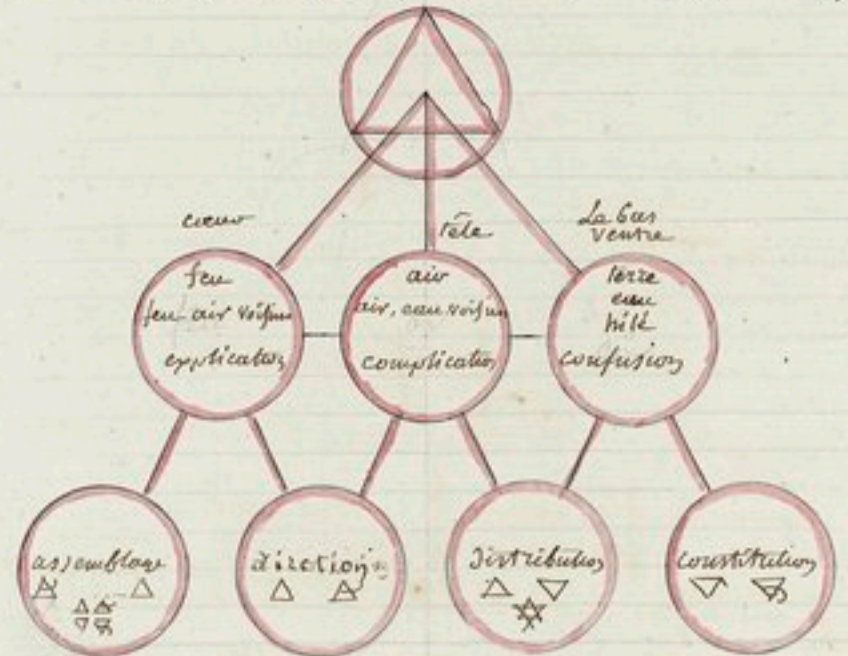 cœur
tête
Le bas
ventre
feu
feu air voisins
explication
air
air, eau voisins
complication
terre
eau
confusion
assemblage
direction
distribution
constitution